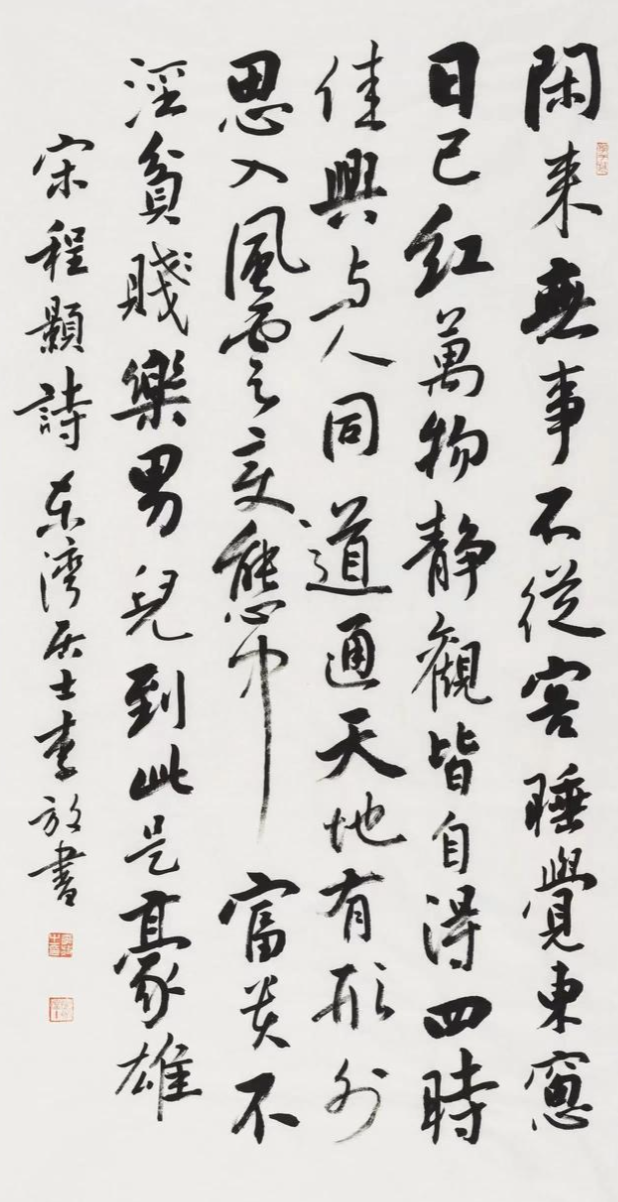 閑来無事不從容睡覺東窓
日已红萬物静觀皆自得四時
佳興与人同道通天地有形外
思入風雲变態中富贵不
淫貧賤樂男兒到此是豪雄
宋程顥詩东湾居士李放書